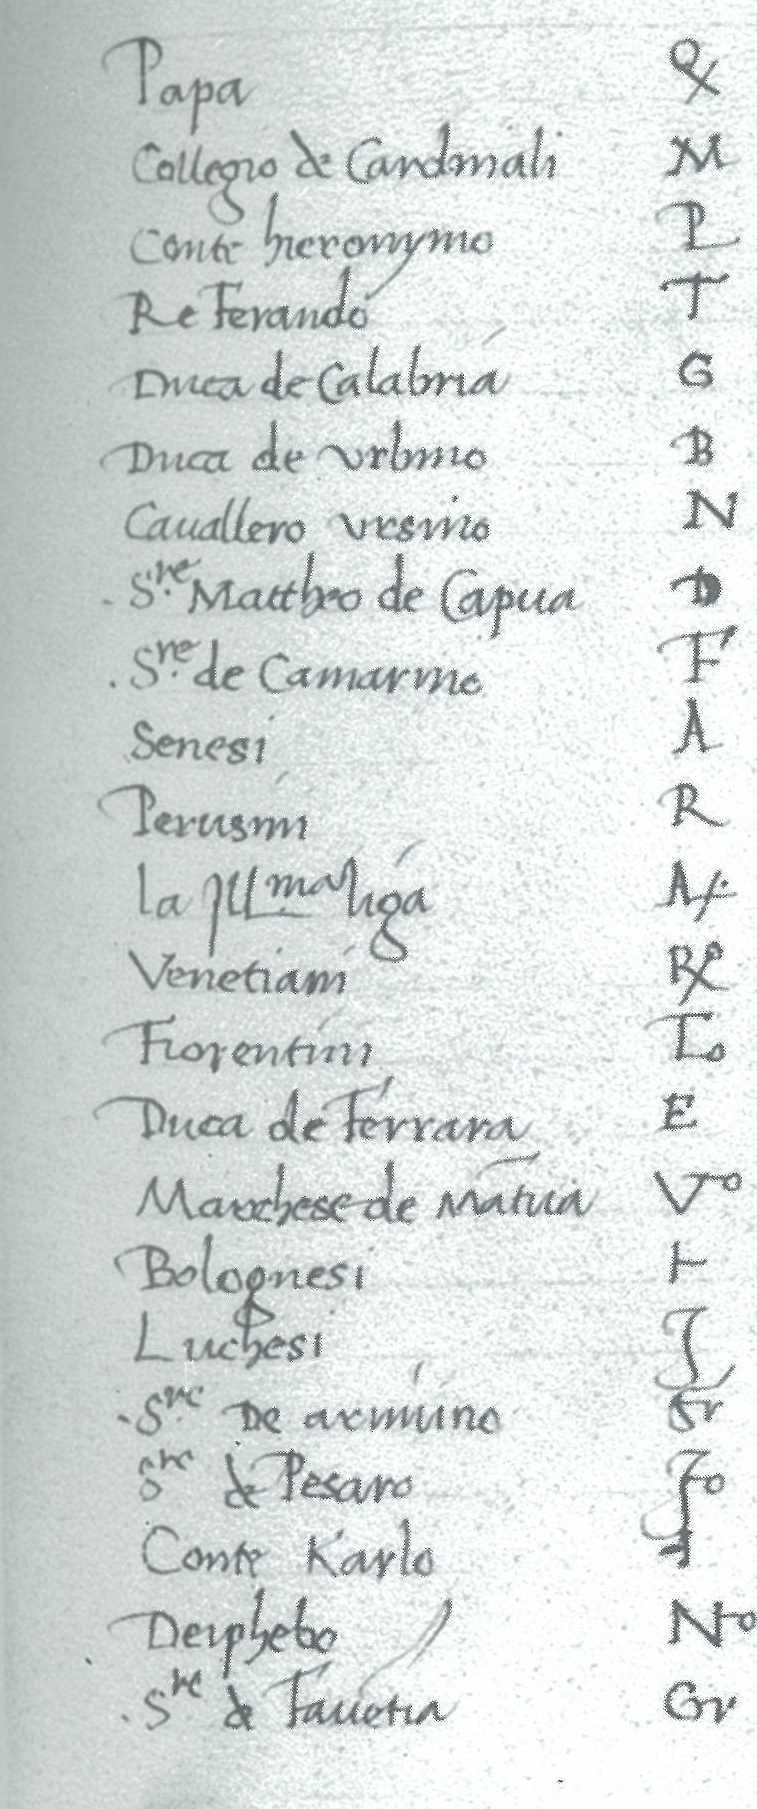 Papa
Collegio de Cardinali M
Conte hieronymo P
Re Ferando T
Duca de Calabria G
Duca de vrbino B
Cauallero vrsino N
.Sre Mattheo de Capua D
.Sre de Camarino F
Senesi A
Perusini R
la Illma liga
Venetiani
Fiorentini Lo
Duca de Ferrara E
Marchese de Mātua Vo
Bolognesi
Luchesi
.Sre De arimino Fr
Sre de Pesaro
Conte Karlo
Deiphebo No
.Sre de Fauētia Gr